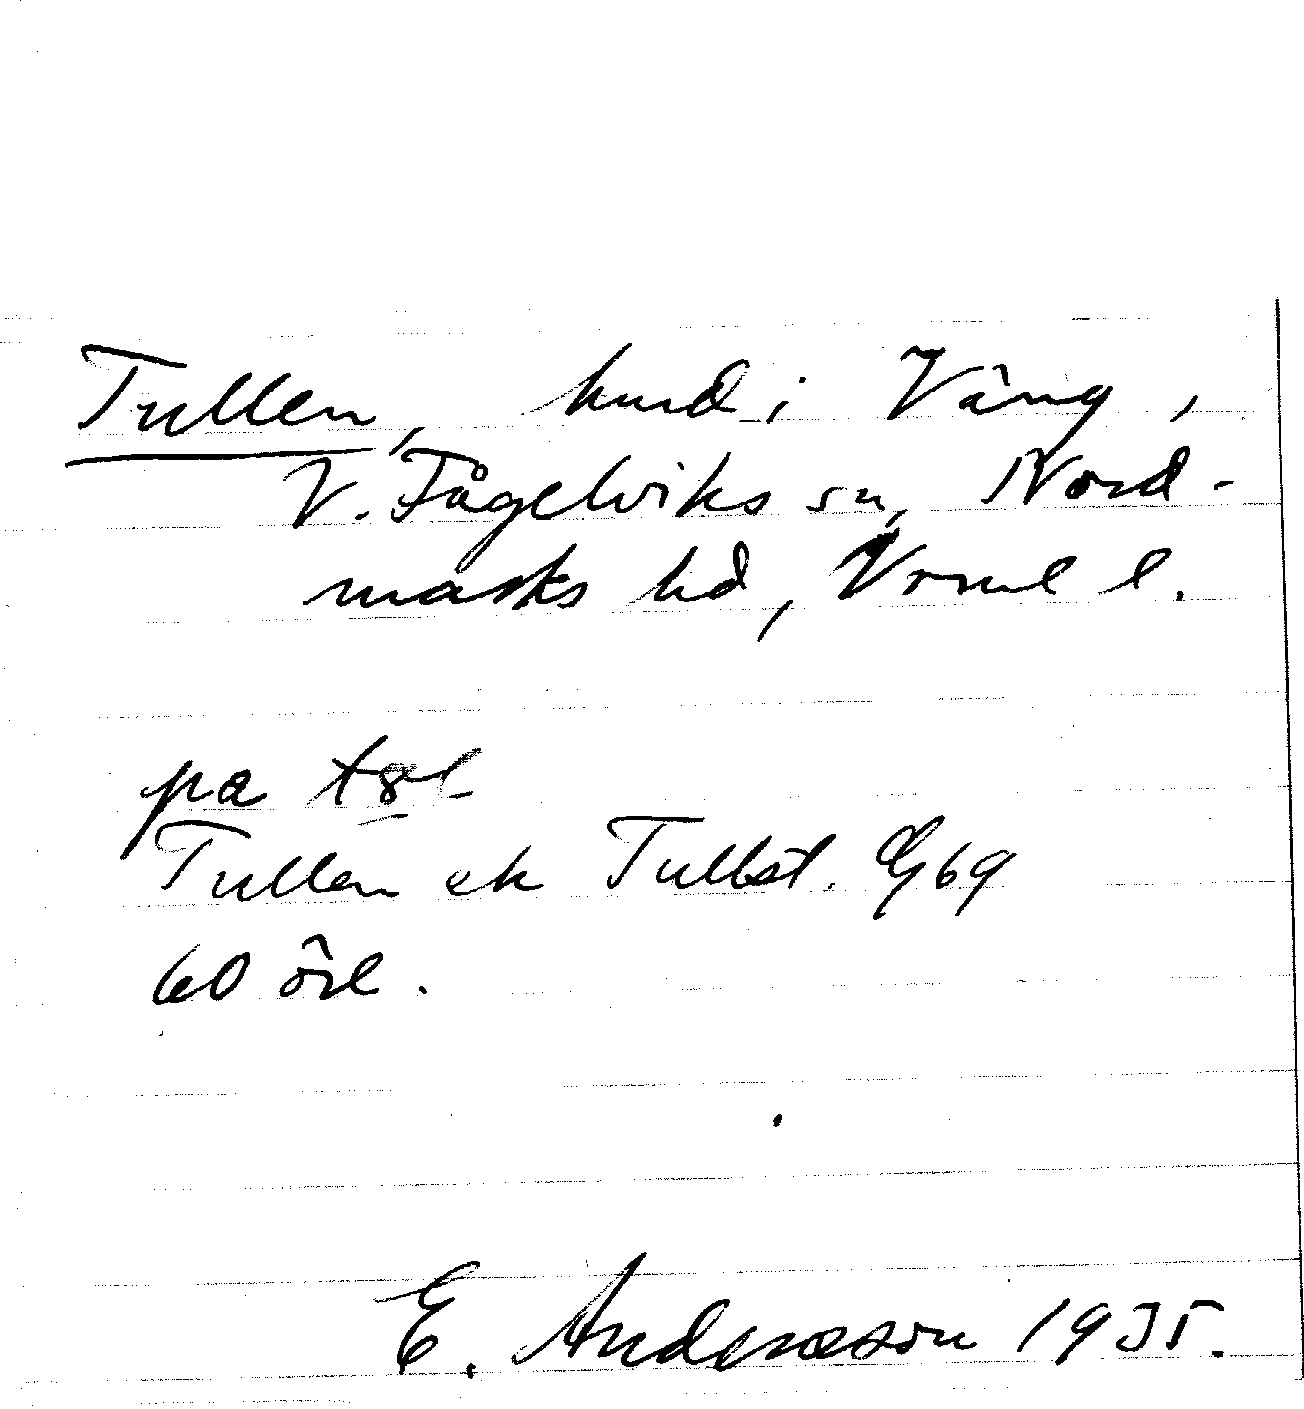 Tullen, hmd i Väng,
V. Fågelviks sn, Nord-
marks hd, Vrml l.
på
Tullen ek Tullst. G69
60 öre.
E. Andersson 1935.